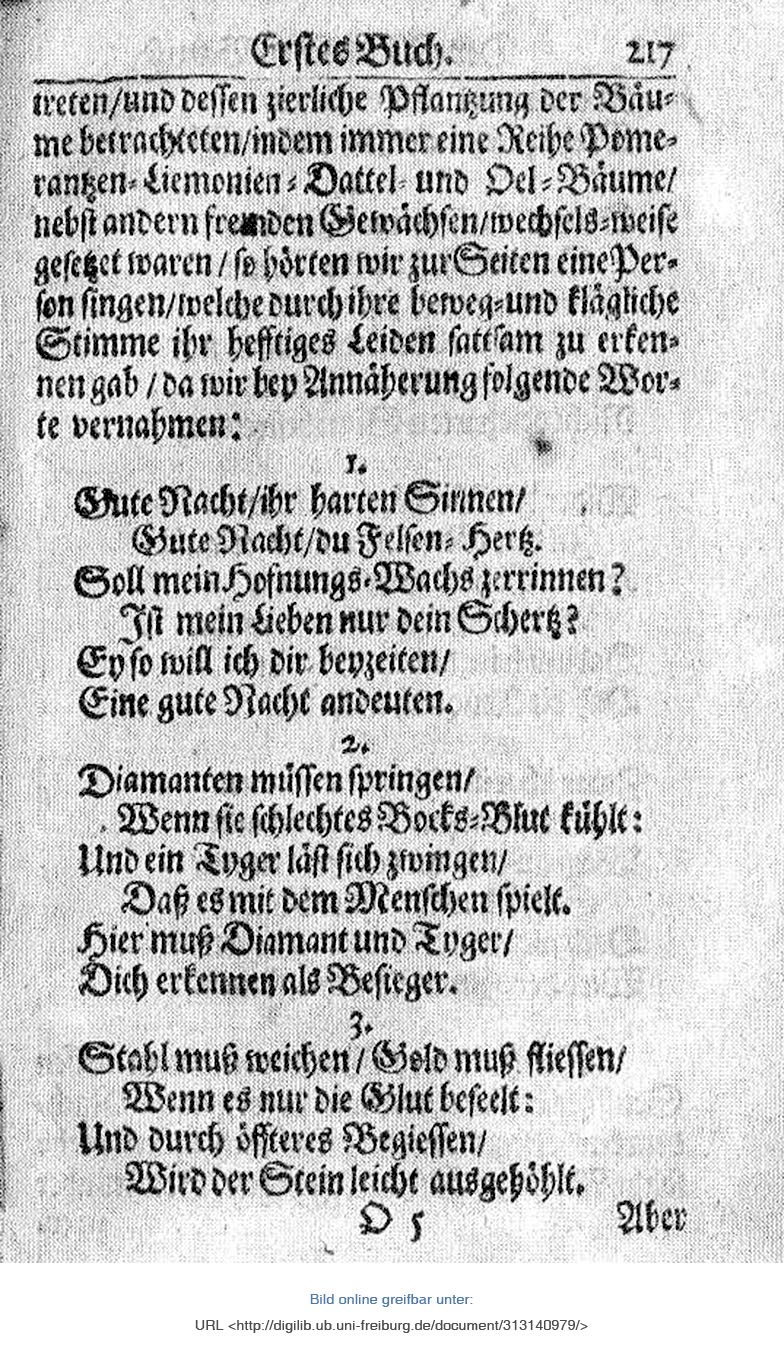 Erstes Buch. 217
treten/und dessen zierliche Pflantzung der Bäu-
me betrachteten/indem immer eine Reihe Pome-
rantzen-Liemonien-Dattel- und Oel-Bäume/
nebst andern fremden Gewächsen/wechsels-weise
gesetzet waren/so hörten wir zur Seiten eine Per-
son singen/welche durch ihre beweg-und klägliche
Stimme ihr hefftiges Leiden sattsam zu erken-
nen gab/da wir bey Annäherung folgende Wor-
te vernahmen:
1.
Gute Nacht/ihr harten Sinnen/
Gute Nacht/du Felsen-Hertz.
Soll mein Hofnungs-Wachs zerrinnen?
Ist mein Lieben nur dein Schertz?
Ey so will ich dir beyzeiten/
Eine gute Nacht andeuten.
2.
Diamanten müssen springen/
Wenn sie schlechtes Bocks-Blut kühlt:
Und ein Tyger läst sich zwingen/
Daß es mit dem Menschen spielt.
Hier muß Diamant und Tyger/
Dich erkennen als Besieger.
3.
Stahl muß weichen/Gold muß fliessen/
Wenn es nur die Glut beseelt:
Und durch öffteres Begiessen/
Wird der Stein leicht ausgehöhlt.
O 5 Aber
Bild online greifbar unter:
URL <http://digilib.ub.uni-freiburg.de/document/313140979/>